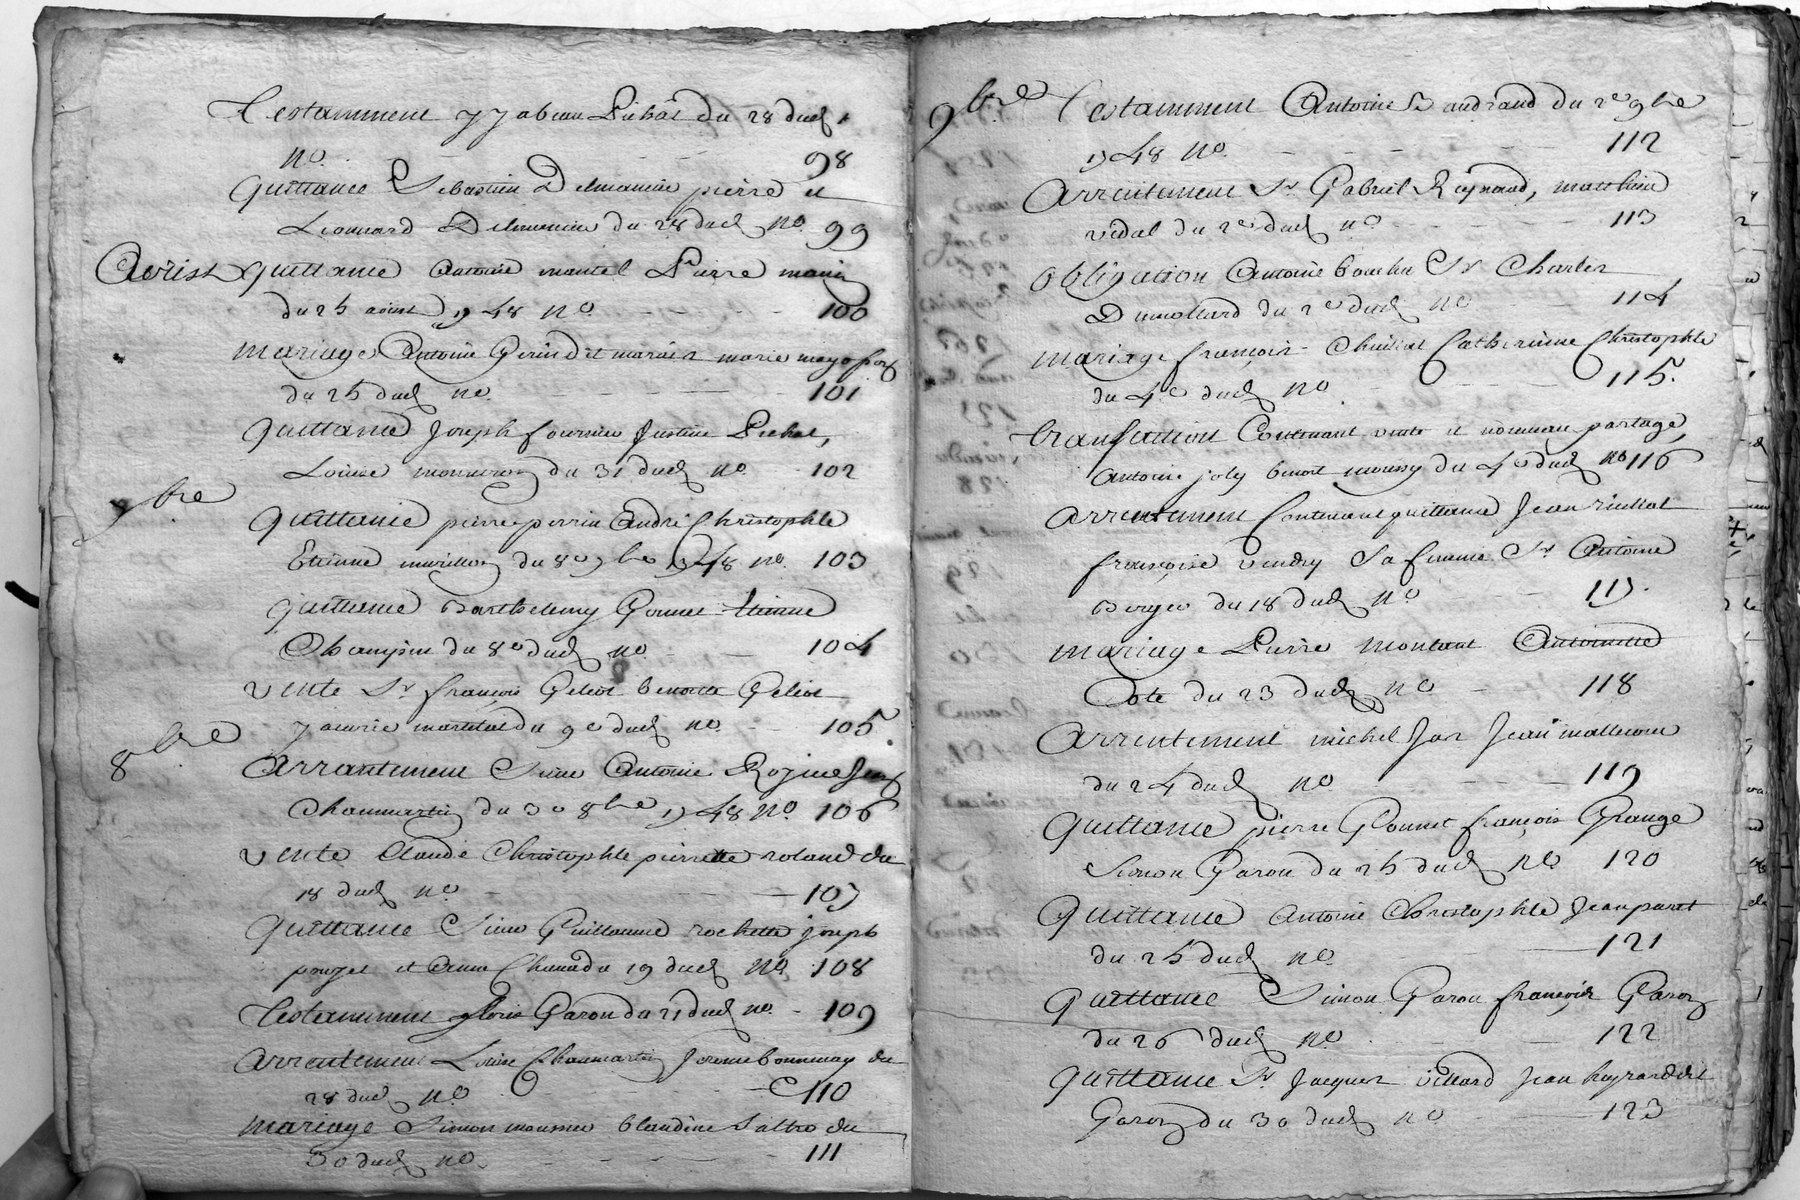 Testamment ysabeau Pichat du 28 dud
no. 98
quittance Sebastien Delmanine pierre et
Leonnard Delmanine du 28 dud no. 99
Aoust quittance Antoine mantel Pierre
du 25 aoust 1748 no. 100
mariage Antoine Gerin dit marais marie
du 25 dud no. 101
quittance Joseph fournier Justine Pichat,
Louise du 31 dud no. 102
7bre
quittance pierre perrin André Christophle
Etienne murillon du 8e 7bre 1748 no. 103
quittance Barthelemy Gonnet Etienne
Champin du 8e dud no. 104
vente Sr françois Geliot benoitte Geliot
du 9e dud no. 105.
8bre
Arrantement Sieur Antoine
Chaumartin du 3e 8bre 1748 no. 106
vente Claude Christophle pierrette roland du
18 dud no. 107
quittance Sieur Guillaume rochette joseph
pouzet et du 19 dud no. 108
Testamment Garon du 21 dud no. 109
arrentement Louise Chaumartin Jerome bonnenay du
28 dud no. 110
mariage Simon mousnier blandine du
30 dud no. 111
9bre Testamment Antoine Baudrand du 2e 9bre
1748 no. 112
Arrentement Sr Gabriel Reynaud, matthieu
vidal du 2e dud no. 113
obligation Antoine Sr Charles
Dumollard du 2e dud no 114
mariage françois Catherinne Christophle
du 4e dud no. 115.
transaction Contenant vente et nouveau partage,
antoine joly benoit du 4e dud no 116
arrentement Contenant quittance Jean
françoise vendry sa femme Sr Antoine
Berger du 18 dud no 117.
mariage Pierre montant Antoinette
Cote du 23 dud no 118
Arrentement michel Jas Jean
du 24 dud no 119
quittance pierre Gonnet françois Grange
Simon Garon du 25 dud no 120
quittance Antoine Christophle Jean paret
du 25 dud no. 121
quittance Simon Garon françois Garon
du 26 dud no 122
quittance Sr Jacques villard Jean
Garon du 30 dud no 123